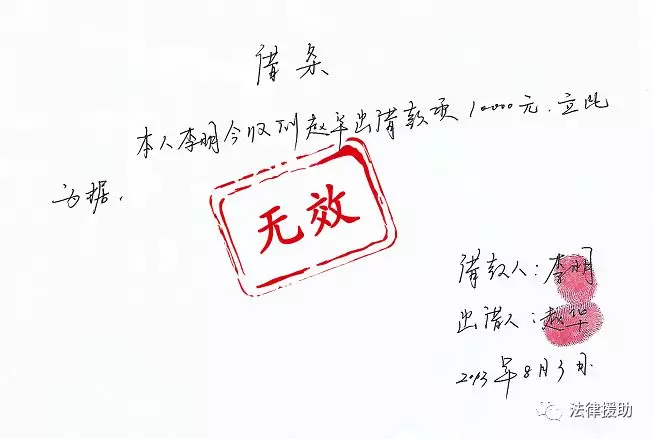 借条
本人李明今收到赵华出借款项10000元.立此
为据.
无效
借款人:李明
出借人:赵华
2013年8月3日
法律援助